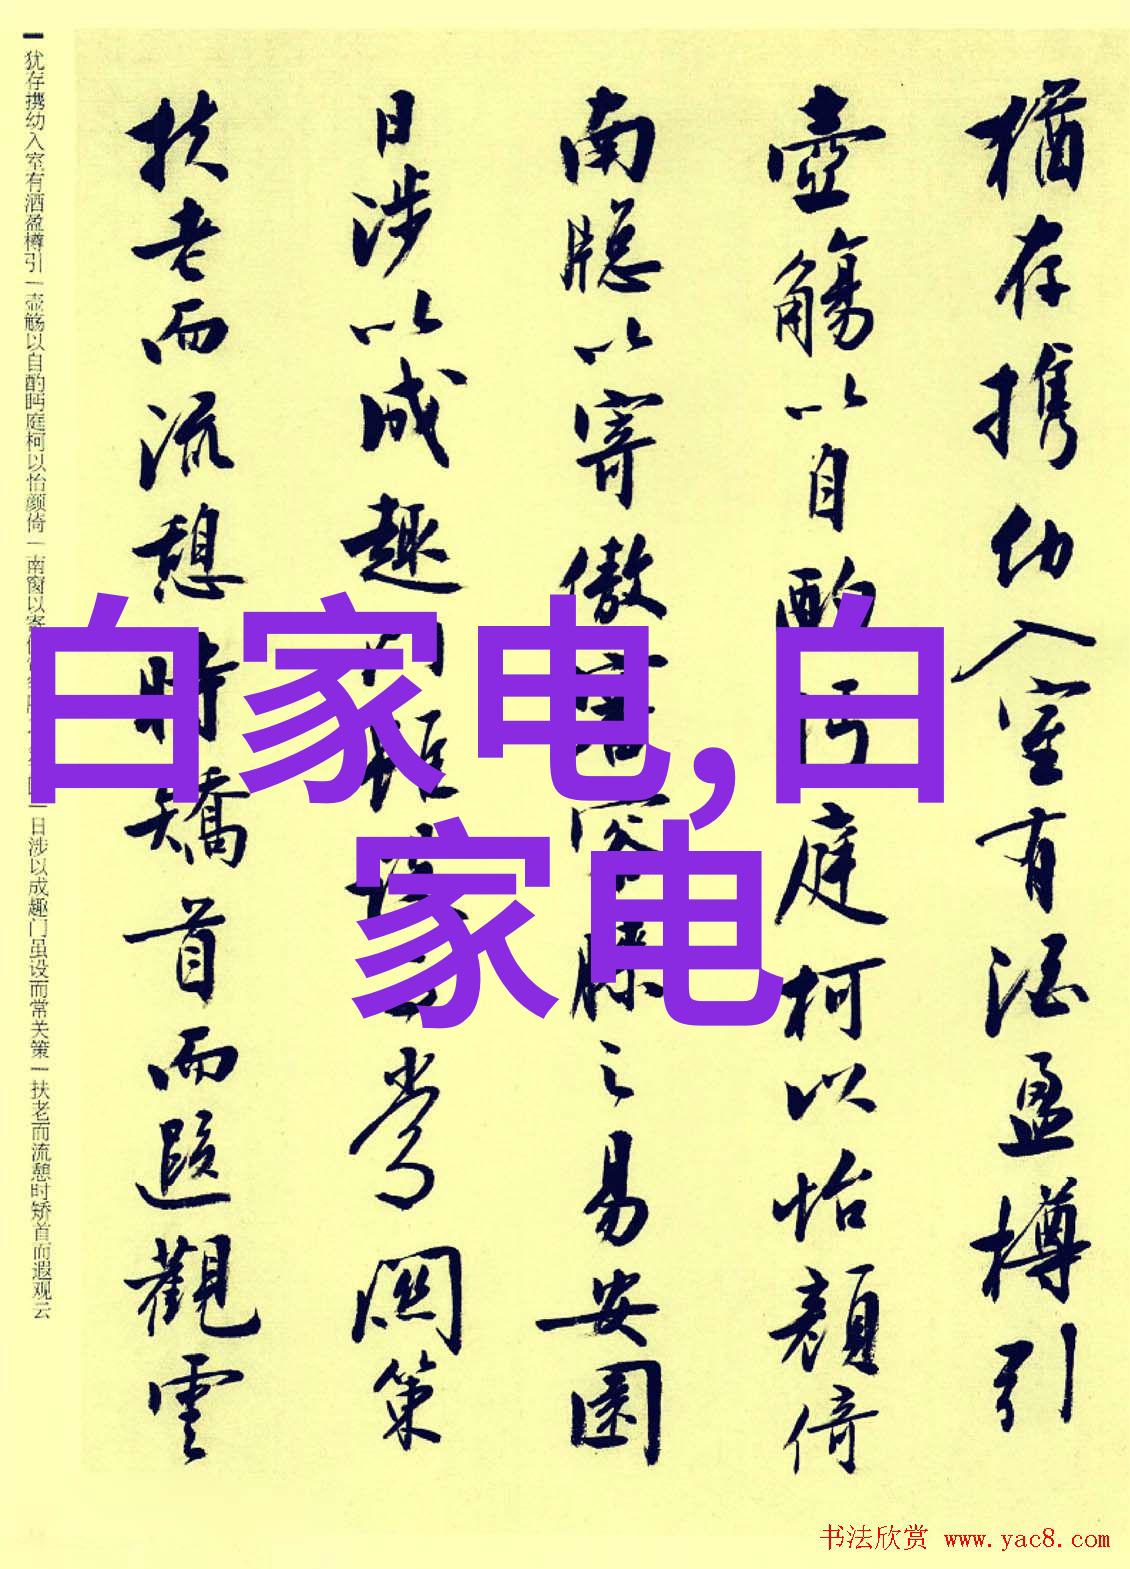 猶存携幼入室有酒盈樽引
壺觴以自酌眄庭柯以怡顏倚
南牕以寄傲審容膝之易安園
日涉以成趣門雖設而常関策
扶老而流憩時矯首而遐觀雲
犹存携幼入室有酒盈樽引|壶觞以自酌眄庭柯以怡颜倚|南窗以寄
日涉以成趣门虽设而常关策|扶老而流憩时矫首而遐观云
白家电,白
家电
书法欣赏 www.yac8.com